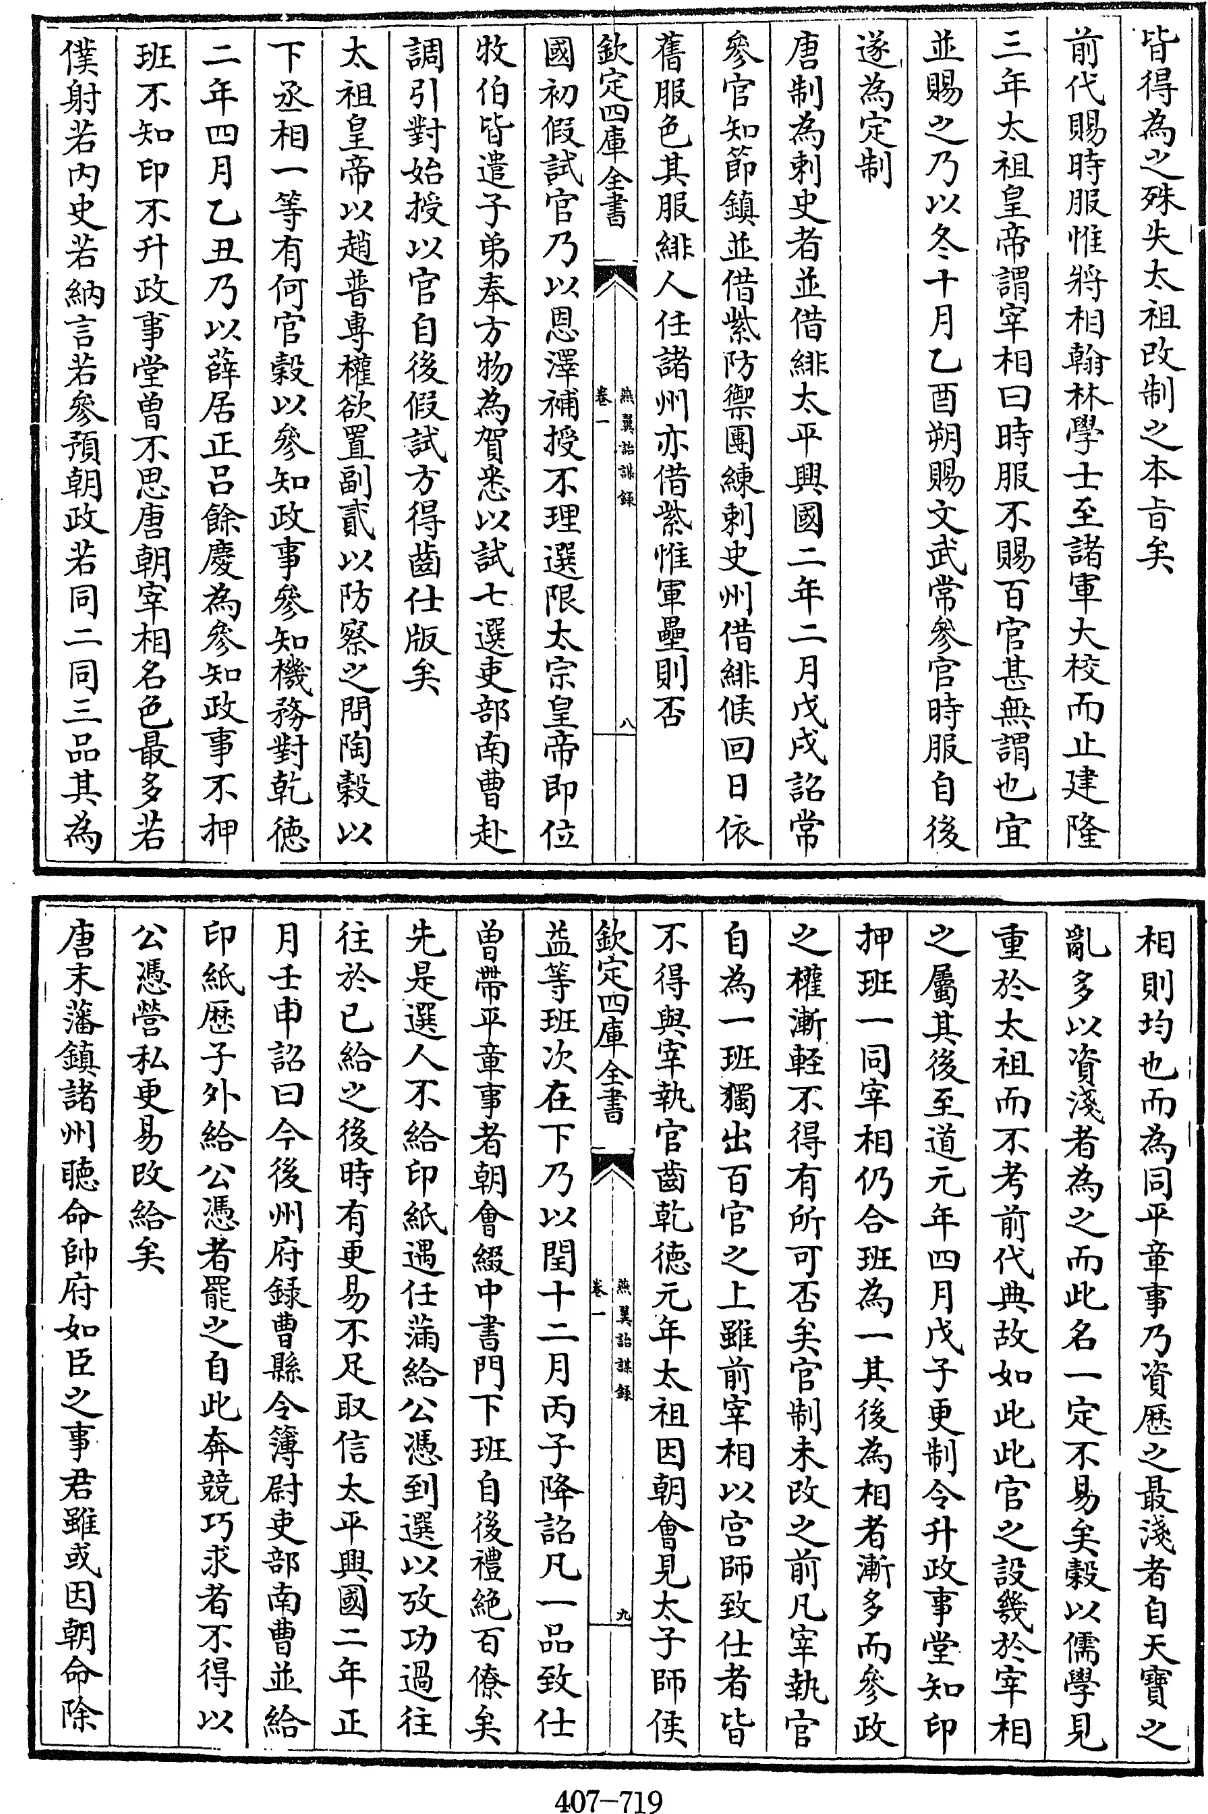 皆得為之殊失太祖改制之本㫖矣
前代賜時服惟將相翰林學士至諸軍大校而止建隆
三年太祖皇帝謂宰相曰時服不賜百官甚無謂也宜
並賜之乃以冬十月乙酉朔賜文武常參官時服自後
遂為定制
唐制為刺史者並借緋太平興國二年二月戊戌詔常
參官知節鎮並借紫防禦團練刺史州借緋候回日依
舊服色其服緋人任諸州亦借紫惟軍壘則否
欽定四庫全書
燕翼詒謀録
卷一
八
國初假試官乃以恩澤補授不理選限太宗皇帝即位
牧伯皆遣子弟奉方物為賀悉以試七選吏部南曹赴
調引對始授以官自後假試方得齒仕版矣
太祖皇帝以趙普專權欲置副貳以防察之問陶穀以
下丞相一等有何官穀以參知政事參知機務對乾徳
二年四月乙丑乃以薛居正吕餘慶為參知政事不押
班不知印不升政事堂曽不思唐朝宰相名色最多若
僕射若内史若納言若參預朝政若同二同三品其為
相則均也而為同平章事乃資歴之最淺者自天寶之
亂多以資淺者為之而此名一定不易矣穀以儒學見
重於太祖而不考前代典故如此此官之設㡬於宰相
之屬其後至道元年四月戊子更制令升政事堂知印
押班一同宰相仍合班為一其後為相者漸多而參政
之權漸輕不得有所可否矣官制未改之前凡宰執官
自為一班獨出百官之上雖前宰相以宫師致仕者皆
不得與宰執官齒乾徳元年太祖因朝會見太子師侯
欽定四庫全書
燕翼詒謀録
卷一
九
益等班次在下乃以閏十二月丙子降詔凡一品致仕
曽帶平章事者朝會綴中書門下班自後禮絶百僚矣
先是選人不給印紙遇任滿給公憑到選以攷功過往
往於已給之後時有更易不足取信太平興國二年正
月壬申詔曰今後州府録曹縣令簿尉吏部南曹並給
印紙歴子外給公憑者罷之自此奔競巧求者不得以
公憑營私更易改給矣
唐末藩鎮諸州聴命帥府如臣之事君雖或因朝命除
407-719